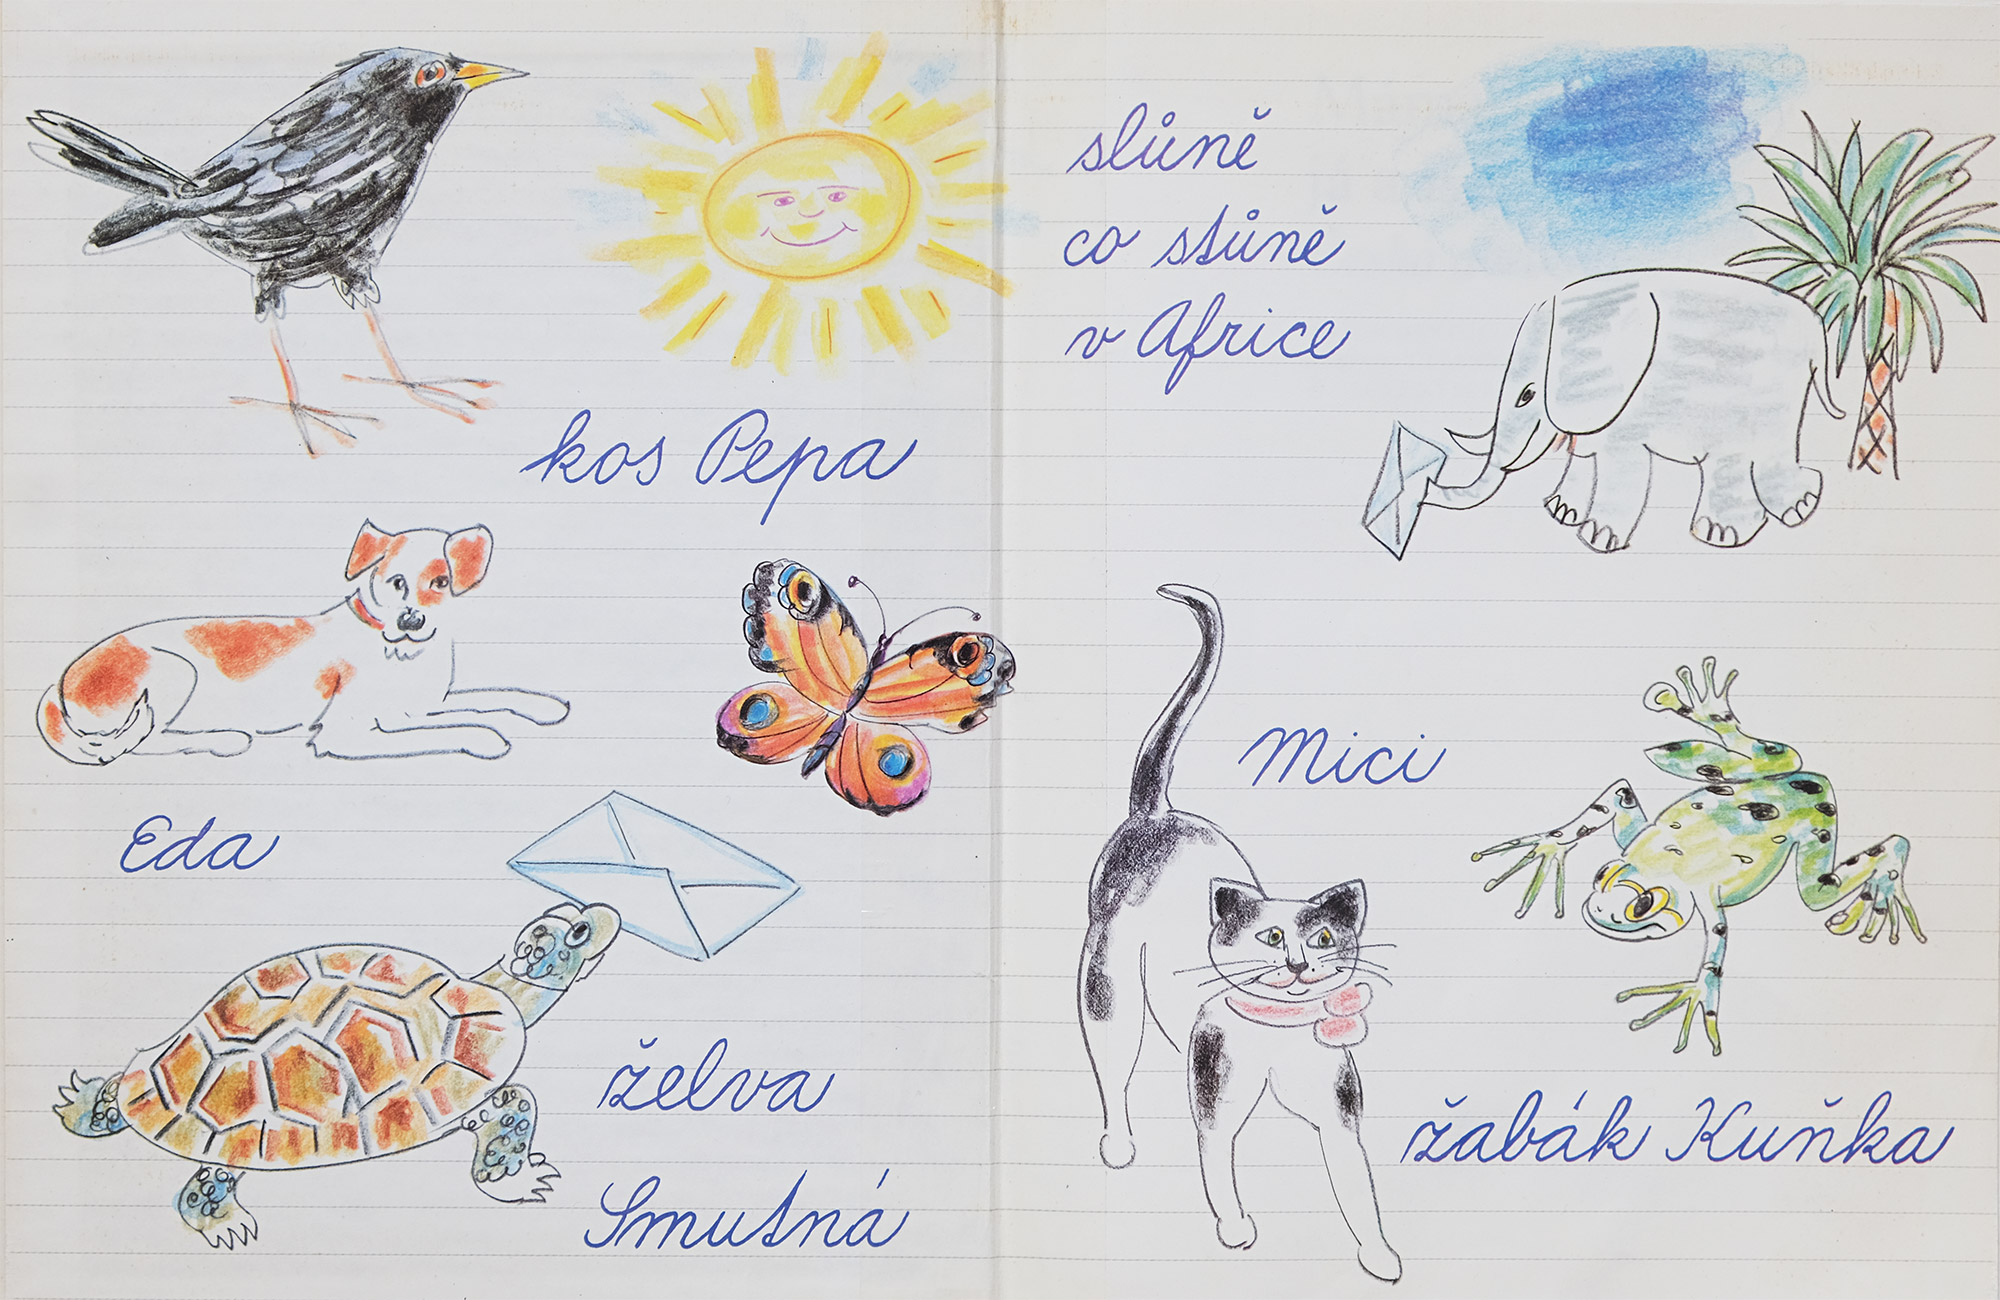 kos Pepa
Eda
želva
Smutná
slůně
co stůně
v Africe
Mici
žabák Kuňka